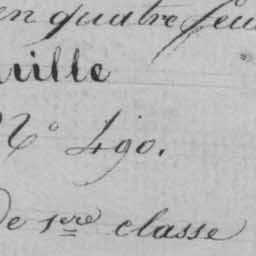 en quatre feui
uille
N° 490.
De 1ere classe